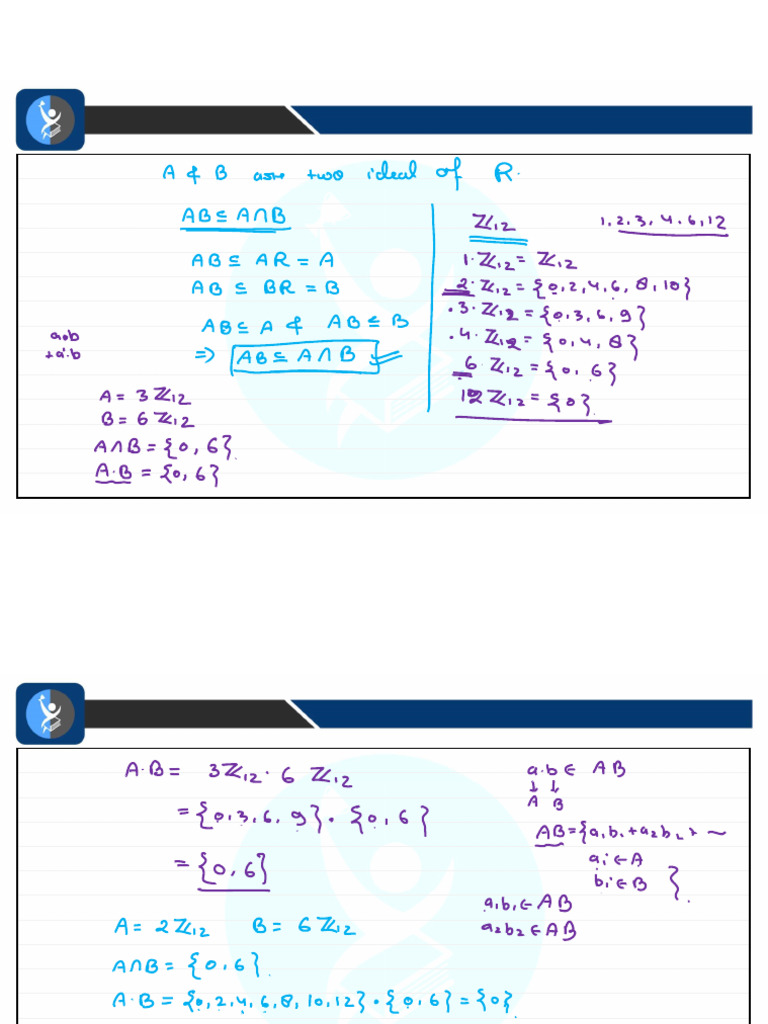 A & B are two ideal of R.
AB ⊆ A∩B
AB ⊆ AR = A
AB ⊆ BR = B
AB ⊆ A & AB ⊆ B
⇒ AB ⊆ A∩B
a·b
+a'·b
A = 3ℤ₁₂
B = 6ℤ₁₂
A∩B = {0, 6}.
A·B = {0, 6}
ℤ₁₂ 1, 2, 3, 4, 6, 12
1·ℤ₁₂ = ℤ₁₂
2·ℤ₁₂ = {0, 2, 4, 6, 8, 10}
·3·ℤ₁₂ = {0, 3, 6, 9}
·4·ℤ₁₂ = {0, 4, 8}
6·ℤ₁₂ = {0, 6}
12ℤ₁₂ = {0}.
A·B = 3ℤ₁₂·6 ℤ₁₂
= {0, 3, 6, 9}·{0, 6}
= {0, 6}
a·b ∈ AB
↓ ↓
A B
AB = {a₁b₁+a₂b₂+ ~
aᵢ ∈ A
bᵢ ∈ B }.
a₁b₁ ∈ AB
a₂b₂ ∈ AB
A = 2ℤ₁₂ B = 6ℤ₁₂
A∩B = {0, 6}.
A·B = {0, 2, 4, 6, 8, 10, 12}·{0, 6} = {0}